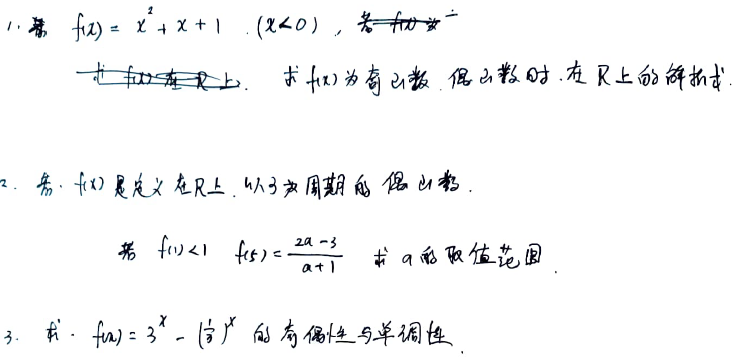 1. 若 f(x) = x² + x + 1 (x<0),
求 f(x) 为奇函数.偶函数时.在R上的解析式.
2. 若. f(x) 是定义在R上.以3为周期的偶函数.
若 f(1)<1 f(5)= (2a-3)/(a+1) 求 a的取值范围.
3. 求. f(x) = 3^x - (1/3)^x 的奇偶性与单调性.